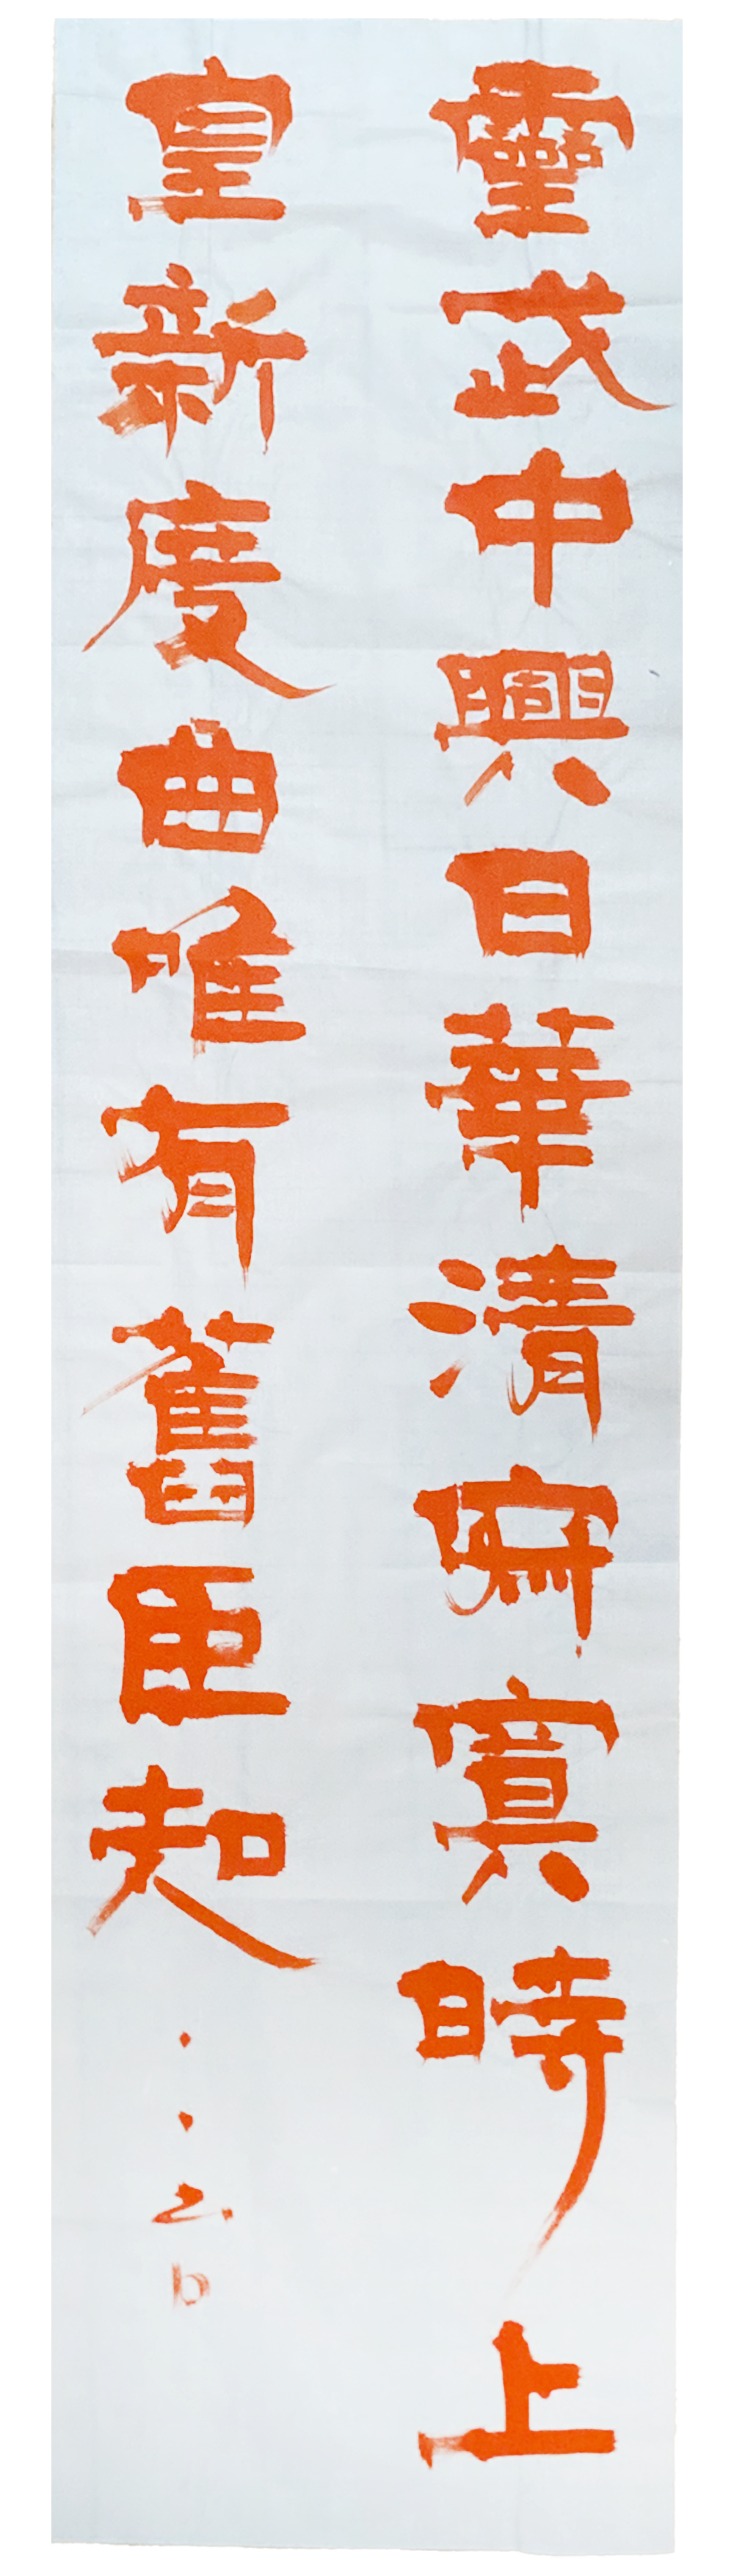 靈武中興日華清寂寞時上
皇新度曲唯有舊臣知